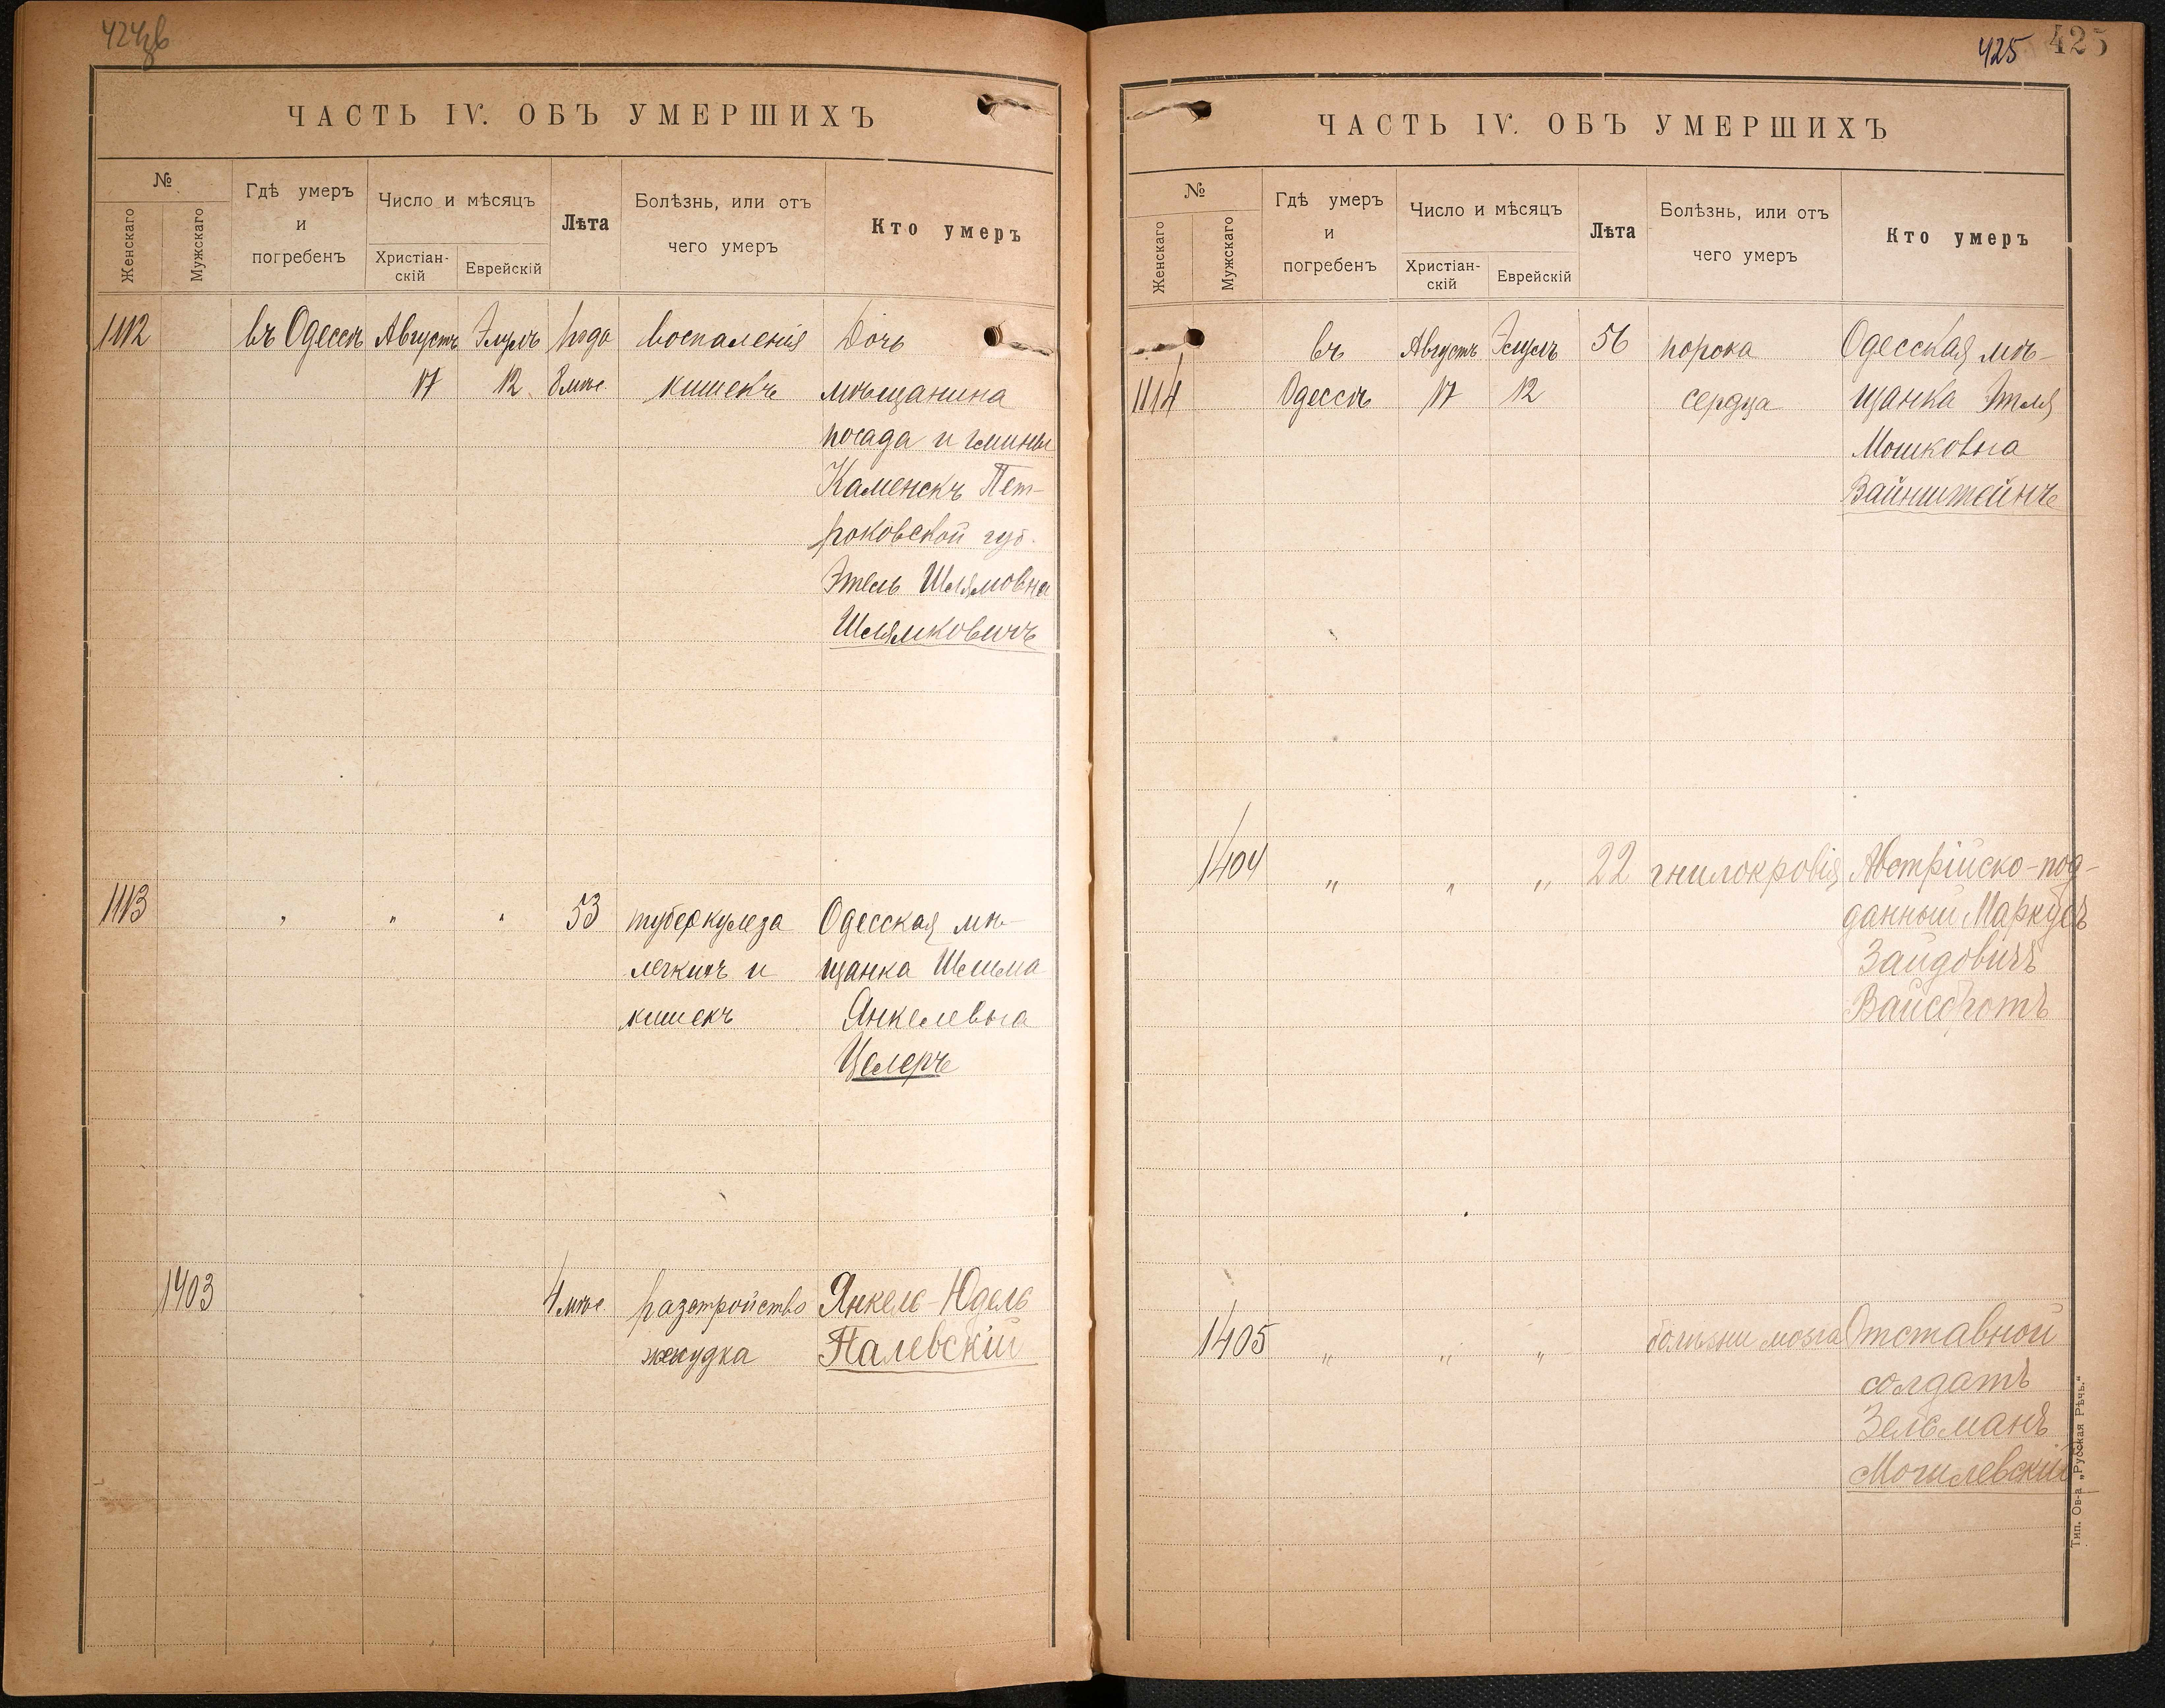 424зв
ЧАСТЬ IV. ОБЪ УМЕРШИХЪ
№
Женскаго
Мужскаго
Гдѣ умеръ
и
погребенъ
Число и мѣсяцъ
Христіан-
скій
Еврейскій
Лѣта
Болѣзнь, или отъ
чего умеръ
Кто умеръ
1112 въ Одессѣ Августъ Элулъ года воспаленія Дочь
17 12 8 мѣс. кишекъ мѣщанина
посада и гмины
Каменскъ Пет-
роковской губ.
Этель Шлямовна
Шлямковичъ
1113 " " " 53 туберкулеза Одесская мѣ-
легкихъ и щанка Шейма
кишекъ Янкелевна
Целеръ
1403 4 мѣс. разстройство Янкель-Юдель
желудка Палевскій
425 425
ЧАСТЬ IV. ОБЪ УМЕРШИХЪ
№
Женскаго
Мужскаго
Гдѣ умеръ
и
погребенъ
Число и мѣсяцъ
Христіан-
скій
Еврейскій
Лѣта
Болѣзнь, или отъ
чего умеръ
Кто умеръ
въ Августъ Элулъ 56 порока Одесская мѣ-
1114 Одессѣ 17 12 сердца щанка Этля
Мошковна
Вайнштейнъ
1404 " " " 22 гнилокровія Австрійско-под-
данный Маркусъ
Зайдовичъ
Вайсбротъ
1405 " " " болѣзни мозга Отставной
солдатъ
Зельманъ
Могилевскій
Тип. Ов-а „Русская Рѣчь."